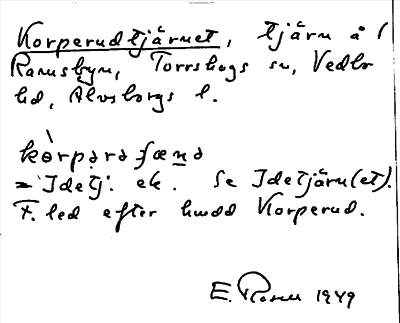 Korperudtjärnet, tjärn å
Ramsbyn, Torrskogs sn, Vedbo
hd, Älvsborgs l.
kòrpərə-ʃænə
= Idetj. ek. Se Idetjärn(et).
F. led efter hmdd Korperud.
E. Rosen 1949